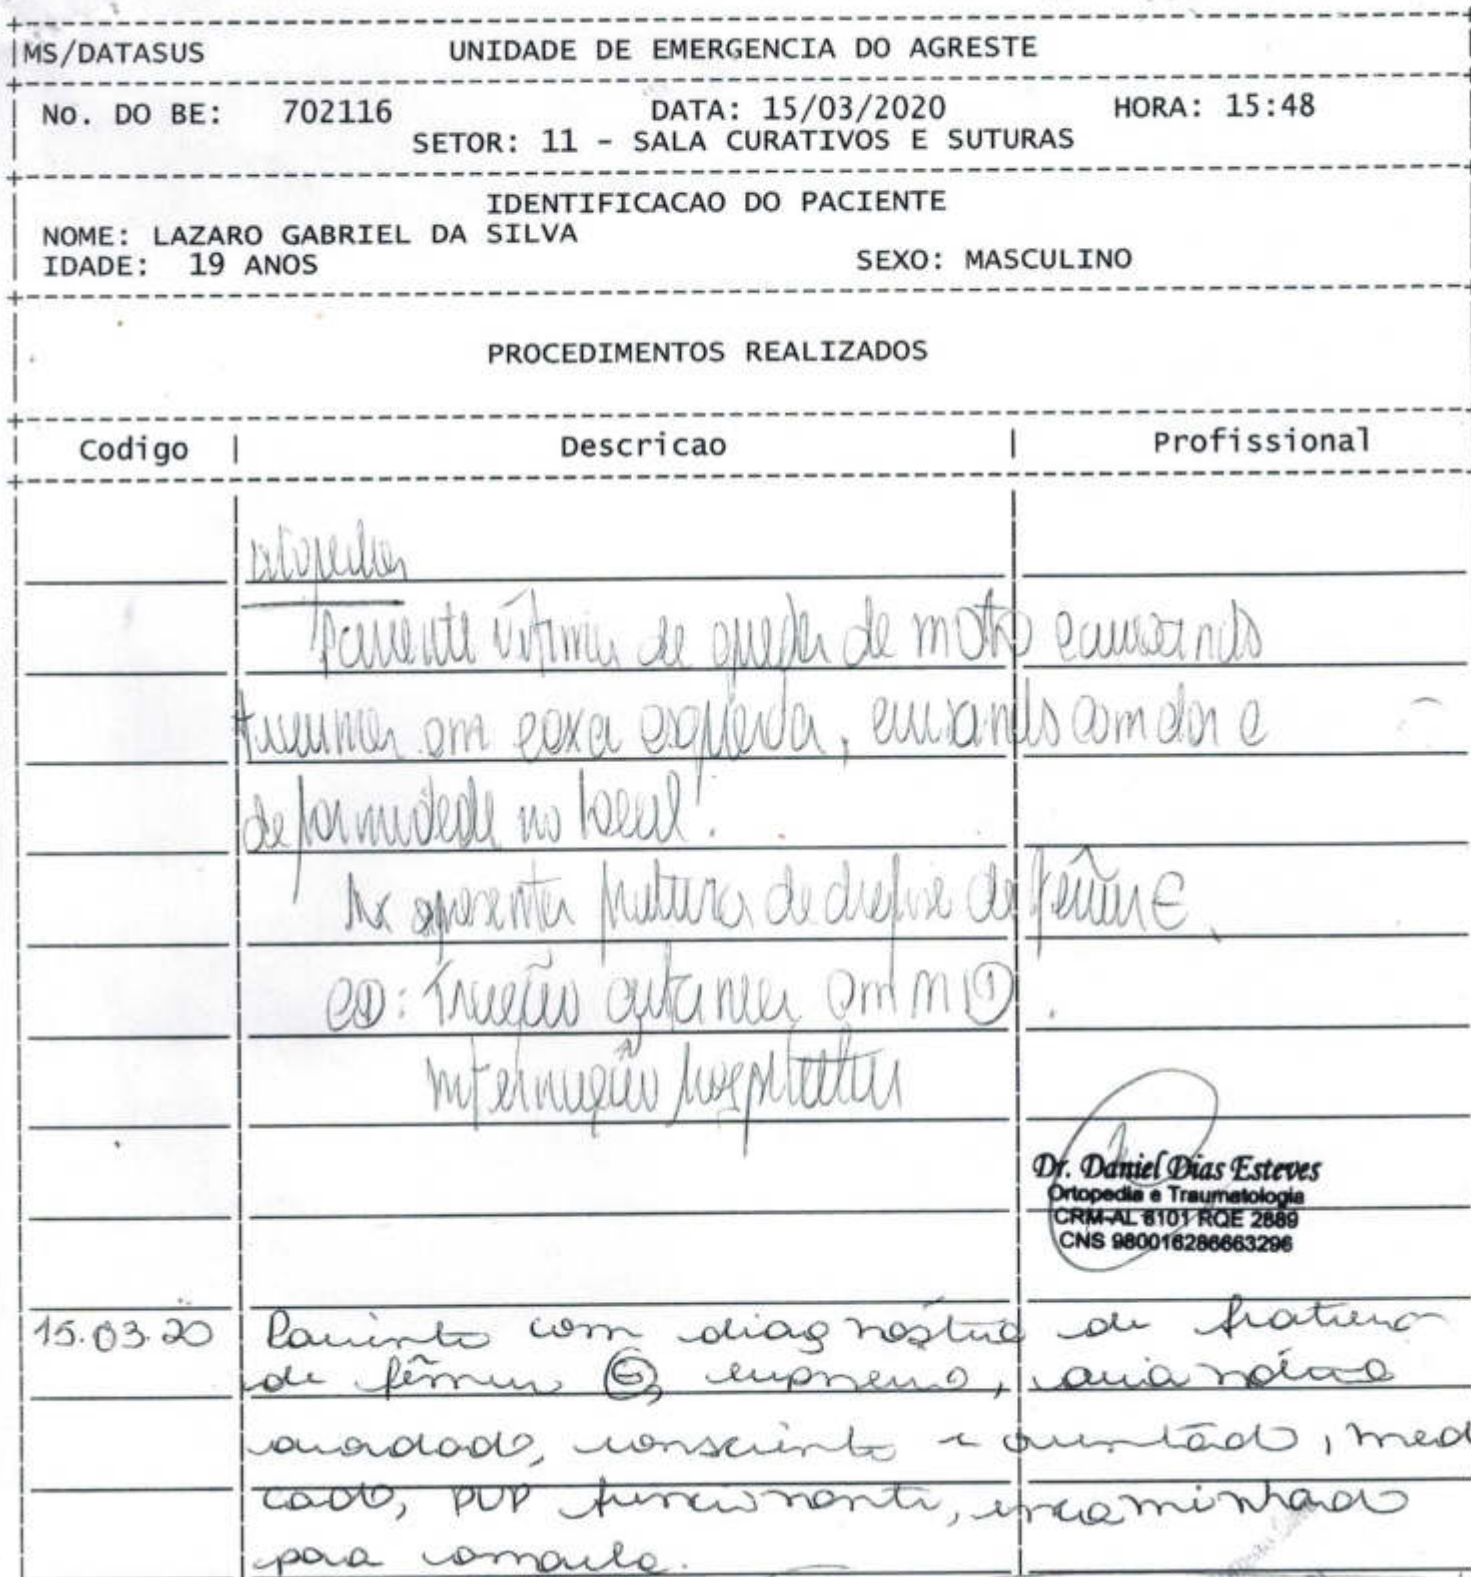 MS/DATASUS UNIDADE DE EMERGENCIA DO AGRESTE
No. DO BE: 702116 DATA: 15/03/2020 HORA: 15:48
SETOR: 11 - SALA CURATIVOS E SUTURAS
IDENTIFICACAO DO PACIENTE
NOME: LAZARO GABRIEL DA SILVA
IDADE: 19 ANOS SEXO: MASCULINO
PROCEDIMENTOS REALIZADOS
Codigo | Descricao | Profissional
ortopedia
Paciente vítima de queda de moto causando
trauma em coxa esquerda, cursando com dor e
deformidade no local.
Rx apresenta fratura de diáfise de fêmur E.
CD: Tração cutânea em
internação hospitalar
Dr. Daniel Dias Esteves
Ortopedia e Traumatologia
CRM-AL 6101 RQE 2889
CNS 980016286663296
15.03.20 Paciente com diagnóstico de fratura
de fêmur E, eupneico, acianótico
acordado, consciente e orientado, medi
cado, PVP funcionante, encaminhado
para